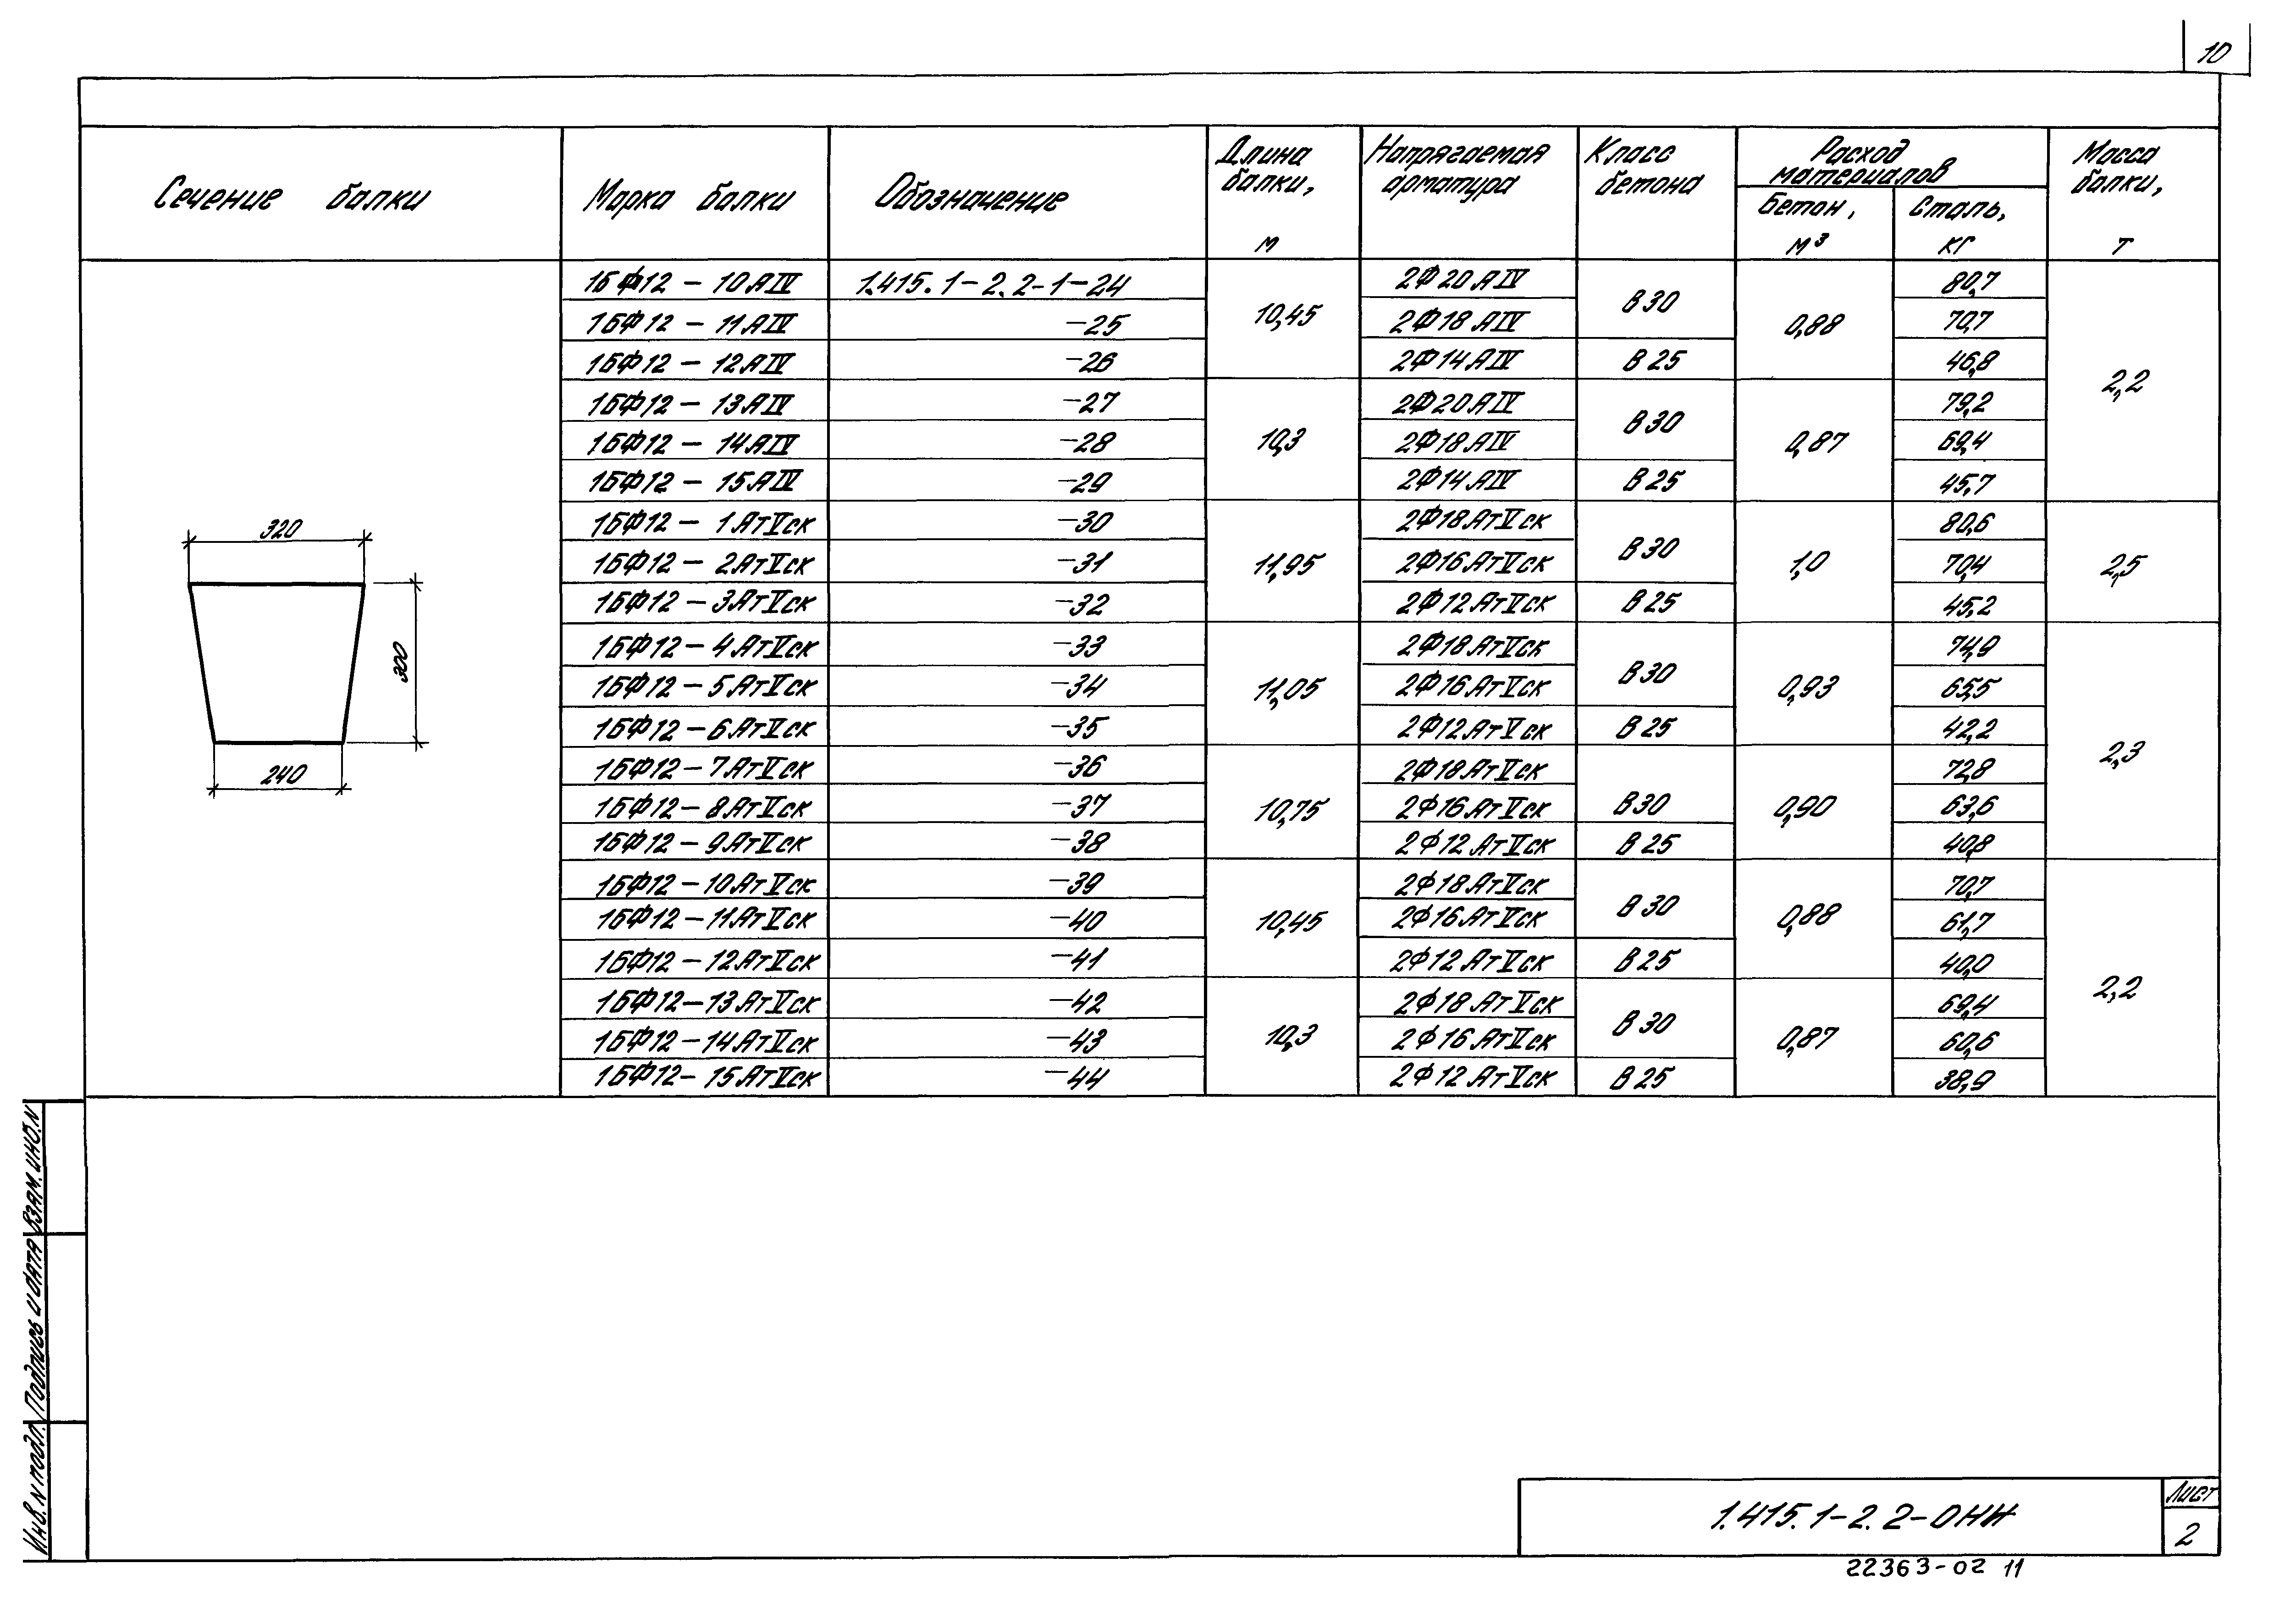 10
Сечение балки
Марка балки
Обозначение
Длина балки, м
Напрягаемая арматура
Класс бетона
Расход материалов
Бетон, м³
Сталь, кг
Масса балки, т
1БФ12 – 10АIV 1.415.1-2.2-1-24 10,45 2Ф20АIV В30 0,88 80,7 2,2
1БФ12 – 11АIV -25 2Ф18АIV 70,7
1БФ12 – 12АIV -26 2Ф14АIV В25 46,8
1БФ12 – 13АIV -27 10,3 2Ф20АIV В30 0,87 79,2
1БФ12 – 14АIV -28 2Ф18АIV 69,4
1БФ12 – 15АIV -29 2Ф14АIV В25 45,7
1БФ12 – 1АтVск -30 11,95 2Ф18АтVск В30 1,0 80,6 2,5
1БФ12 – 2АтVск -31 2Ф16АтVск 70,4
1БФ12 – 3АтVск -32 2Ф12АтVск В25 45,2
1БФ12 – 4АтVск -33 11,05 2Ф18АтVск В30 0,93 74,9 2,3
1БФ12 – 5АтVск -34 2Ф16АтVск 65,5
1БФ12 – 6АтVск -35 2Ф12АтVск В25 42,2
1БФ12 – 7АтVск -36 10,75 2Ф18АтVск В30 0,90 72,8
1БФ12 – 8АтVск -37 2Ф16АтVск 63,6
1БФ12 – 9АтVск -38 2Ф12АтVск В25 40,8
1БФ12 – 10АтVск -39 10,45 2Ф18АтVск В30 0,88 70,7 2,2
1БФ12 – 11АтVск -40 2Ф16АтVск 61,7
1БФ12 – 12АтVск -41 2Ф12АтVск В25 40,0
1БФ12 – 13АтVск -42 10,3 2Ф18АтVск В30 0,87 69,4
1БФ12 – 14АтVск -43 2Ф16АтVск 60,6
1БФ12 – 15АтVск -44 2Ф12АтVск В25 38,9
320
300
240
Взам. инв. N
Подпись и дата
Инв. N подл.
1.415.1-2.2-ОНИ
Лист
2
22363-02 11